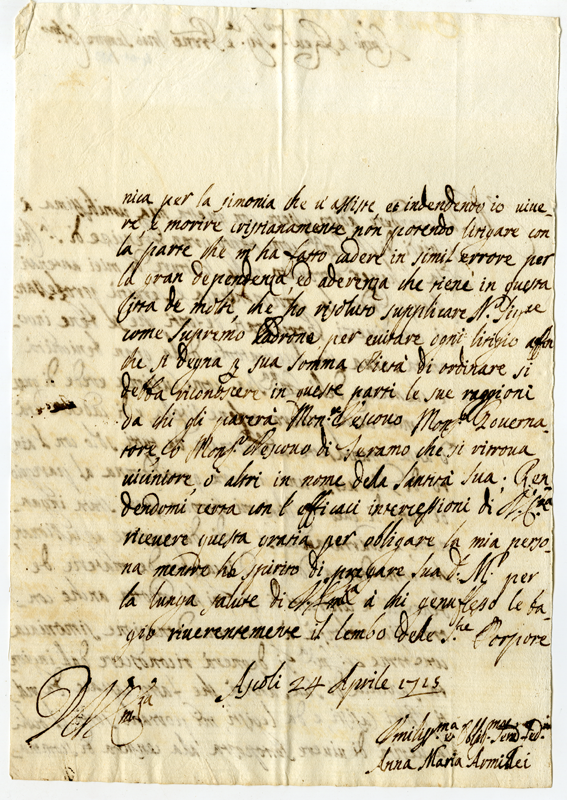 nica per la simonia che v'assiste et indendendo io vive-
re e morire cristianamente non potendo litigare con
la parte che m'ha fatto cadere in simil errore per
la gran dependenza ed aderenza che tiene in questa
Città de molti, che ho risoluto supplicare N.
come Supremo Padrone per evitare ogni litigio
che si degna p sua somma Pietà di ordinare si
debba riconoscere in queste parti le sue raggioni
da chi gli parerà Mon.r Vescovo Mon.r Governa-
tore, o Mons.r Vescovo di Teramo che si ritrova
viciniore o altri in nome dela Santità Sua; Ren-
dendomi certa con l'efficaci intercessioni di
ricevere questa gratia per obligare la mia perso-
na mentre ho spirito di pregare Sua D. M. per
la lunga salute di à chi genuflesso le ba-
gio riverentemente il lembo dele Porpore
Ascoli 24 Aprile 1715
Anna Maria Armillei